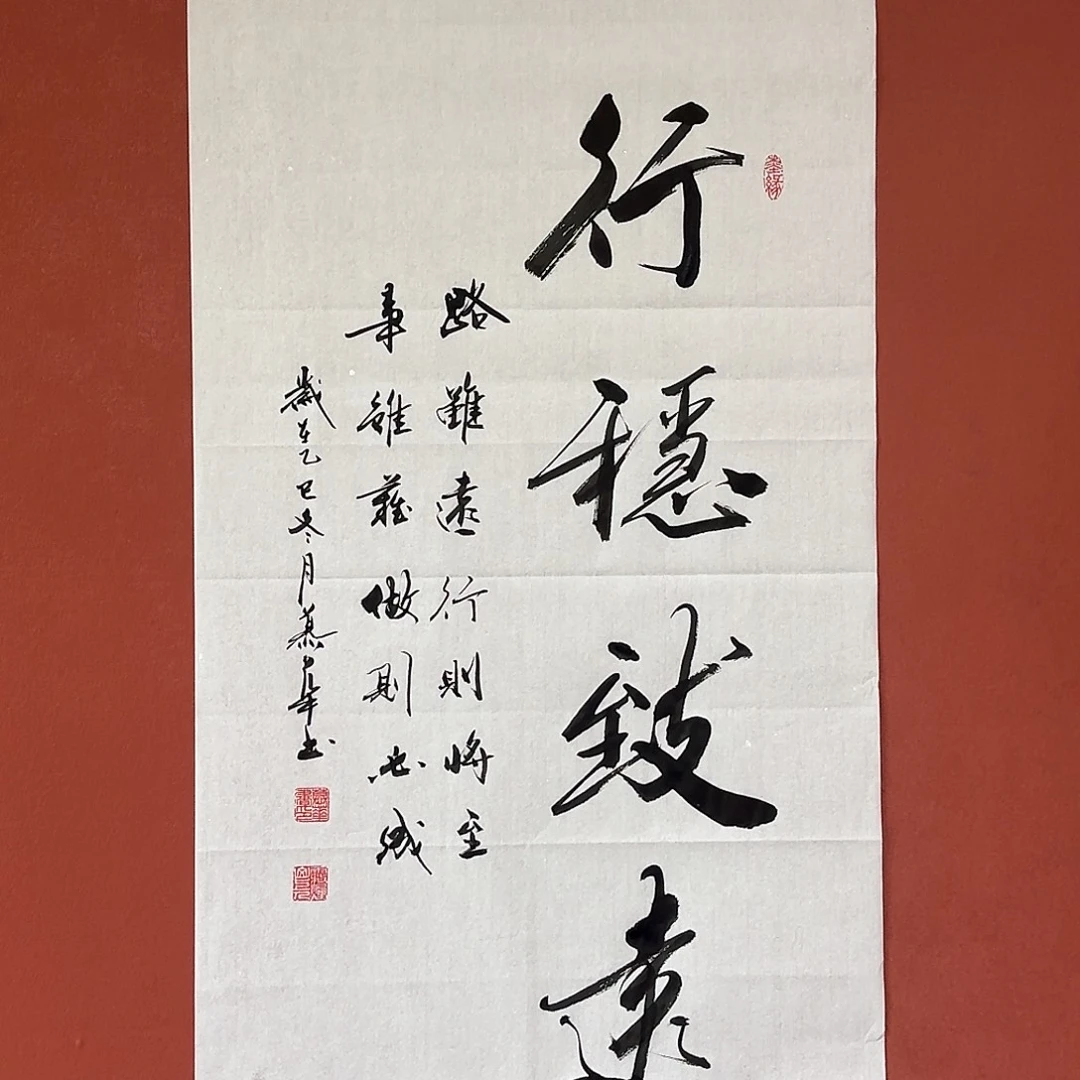 行穩致遠
路雖遠行則將至
事雖難做則必成
歲在乙巳冬月慕華書
墨緣